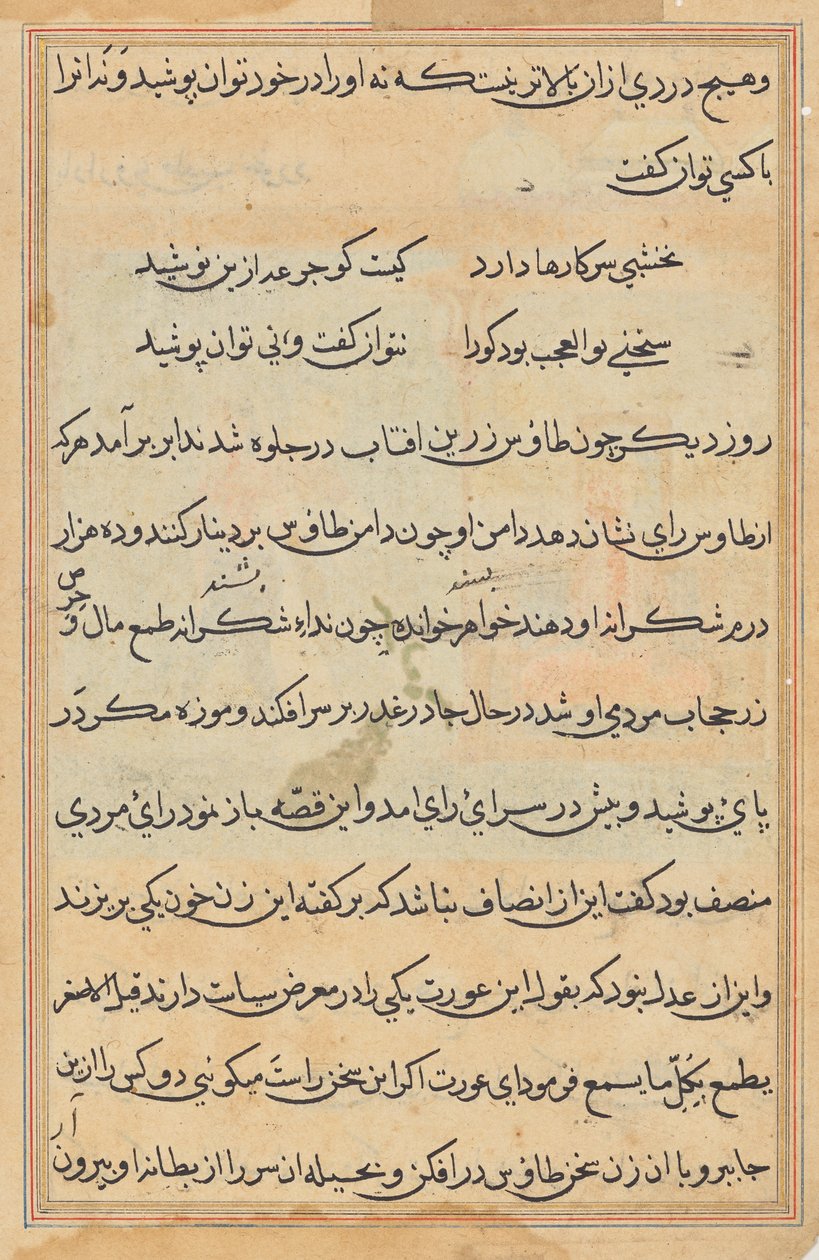 وهیج دردی ازان بالاتر نیست که نه اورا در خود توان پوشید و نه انرا
با کسی توان کفت
نخشبی سرکارها دارد کیست کو جرعه ازین نوشید
سخنی بوالعجب بود کورا نتوان کفت و نی توان پوشید
روز دیکر چون طاؤس زرین افتاب در جلوه شد ندا بر بر آمد هر که
از طاوس رای نشان دهد دامن او چون دامن طاؤس بر دینار کنند و ده هزار
بشنید
درم شکرانه او دهند خواهر خوانده چون نداء شکرانه طمع مال و
زر حجاب مردمی او شد در حال چادر غدر بر سر افکند و موزه مکر در
پائ پوشید و پیش در سرائ رای امد و این قصّه باز نمود رائ مردی
منصف بود کفت این از انصاف نباشد که بر کفته این زن خون یکی بریزند
و این از عدل نبود که بقول این عورت یکی را در معرض سیاست دارند قیل الاصغر
یطمع بکلّ ما یسمع فرمود ای عورت اکر این سخن راست میکوئی دو کس را ازین
جا ببر و با ان زن سخن طاؤس در افکن و بحیله ان سر را از بطانه او بیرون
آر